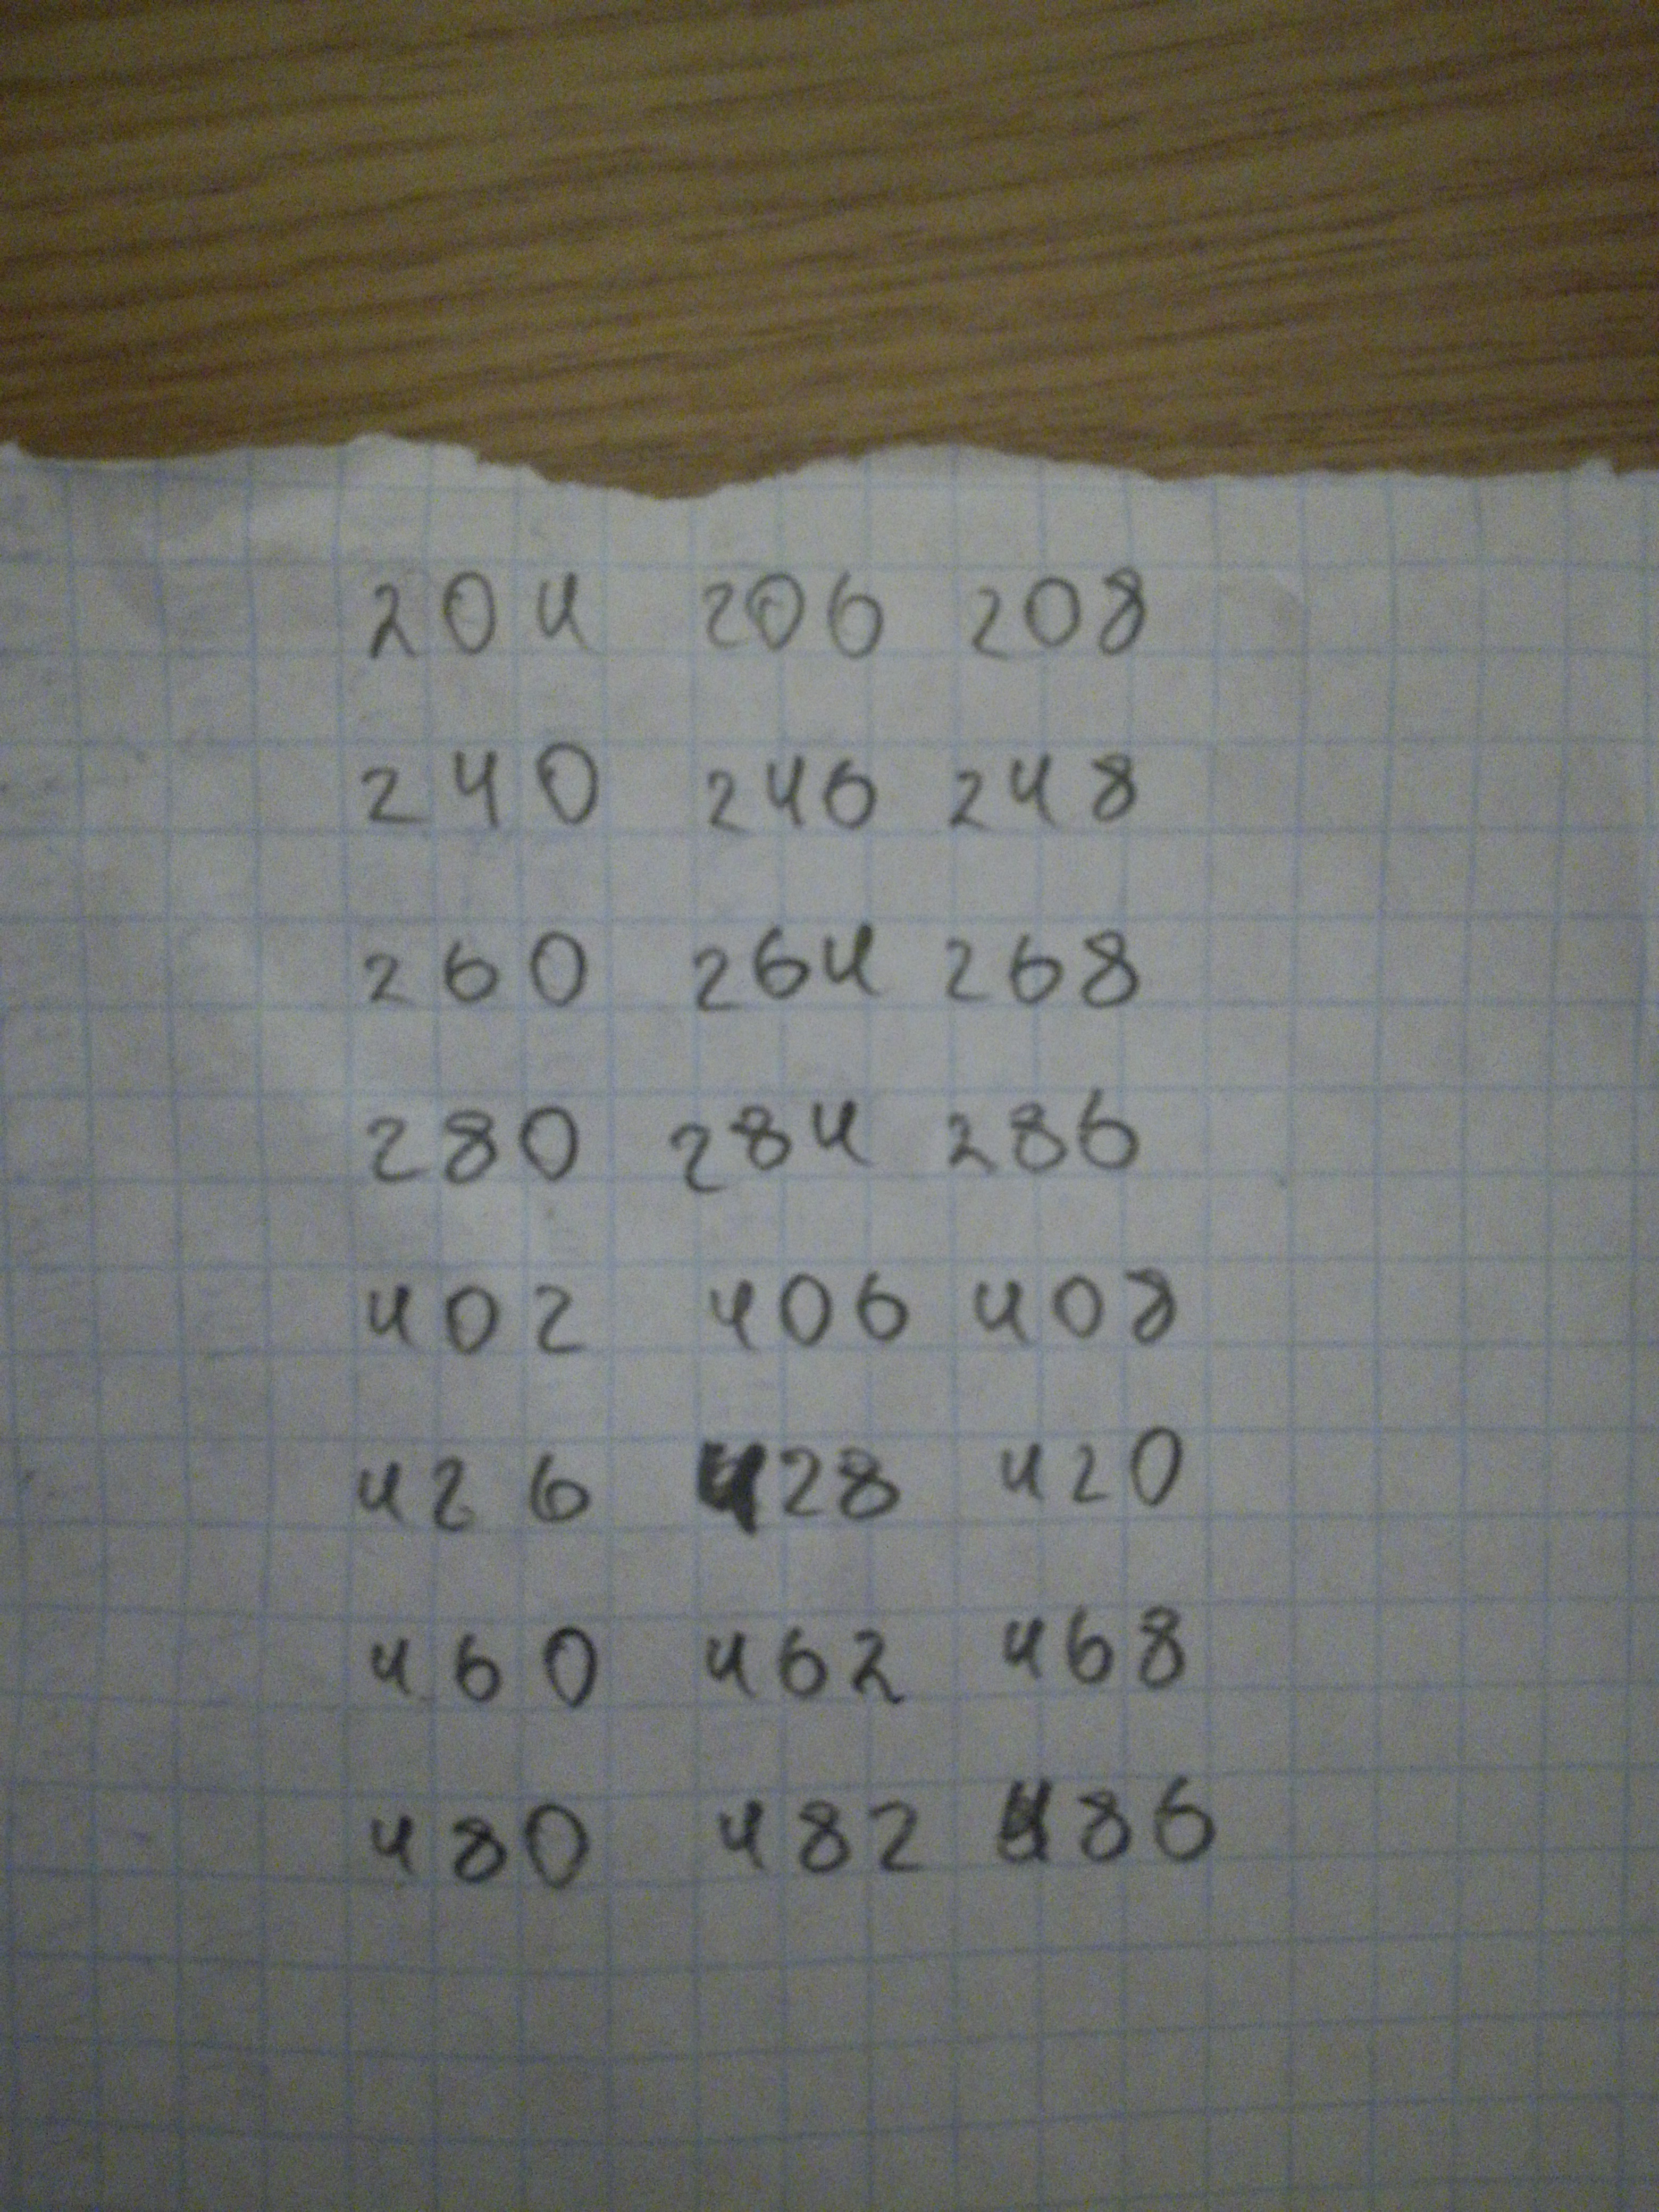 204 206 208
240 246 248
260 264 268
280 284 286
402 406 408
426 428 420
460 462 468
480 482 486